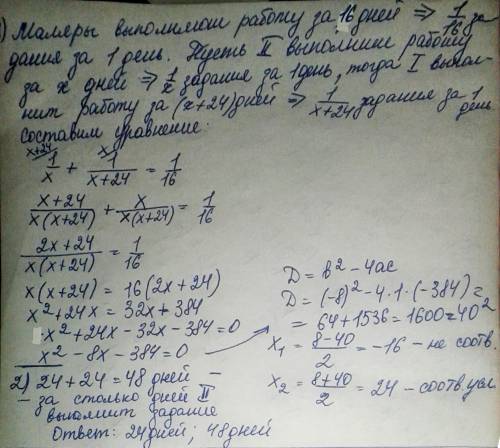 ) Маляры выполняют работу за 16 дней ⇒ 1/16 за
дания за 1 день. Пусть II выполнит работу
за x дней ⇒ 1/x задания за 1 день, тогда I выпол-
нит работу за (x+24) дней ⇒ 1/(x+24) задания за 1 день
составим уравнение:
x+24 x
1/x + 1/(x+24) = 1/16
(x+24)/(x(x+24)) + x/(x(x+24)) = 1/16
(2x+24)/(x(x+24)) = 1/16
x(x+24) = 16(2x+24)
x²+24x = 32x+384
x²+24x-32x-384=0
x²-8x-384=0
D = b²-4ac
D = (-8)²-4·1·(-384)=
= 64+1536=1600=40²
x₁ = (8-40)/2 = -16 - не соотв.
x₂ = (8+40)/2 = 24 - соотв. усл
2) 24+24=48 дней -
- за столько дней II
выполнит задание
Ответ: 24 дней; 48 дней